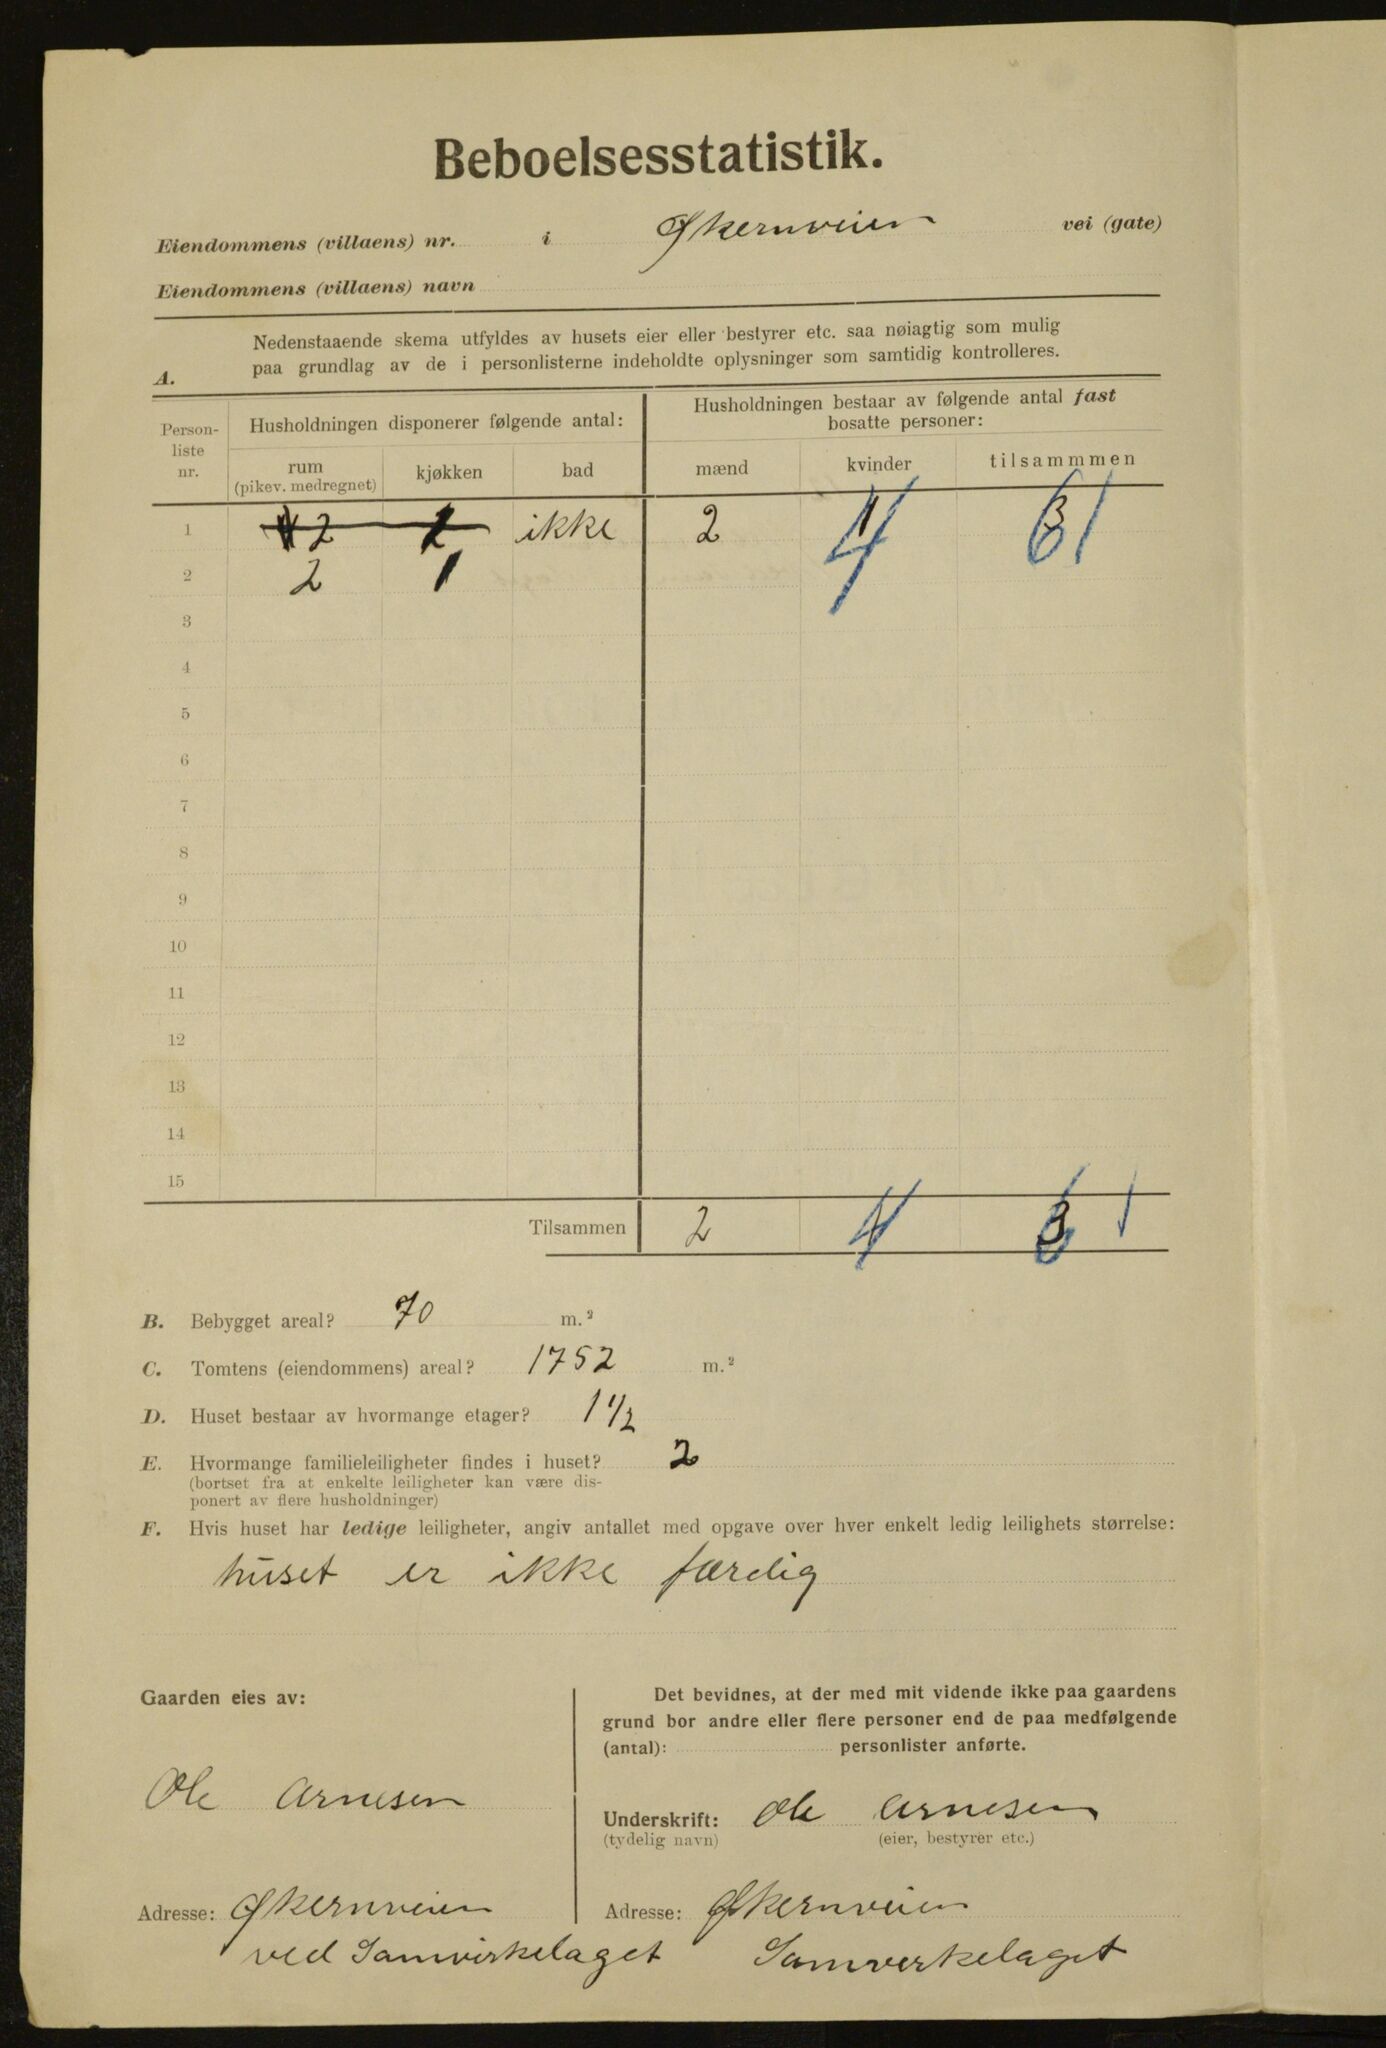 Beboelsesstatistik.
Eiendommens (villaens) nr. i Økernveien vei (gate)
Eiendommens (villaens) navn
Nedenstaaende skema utfyldes av husets eier eller bestyrer etc. saa nøiagtig som mulig
paa grundlag av de i personlisterne indeholdte oplysninger som samtidig kontrolleres.
A.
Person-
liste
nr.
Husholdningen disponerer følgende antal:
Husholdningen bestaar av følgende antal fast
bosatte personer:
rum
(pikev. medregnet)
kjøkken
bad
mænd
kvinder
tilsammmen
1 2 ikke 2 6
2 2 1
3
4
5
6
7
8
9
10
11
12
13
14
15
Tilsammen 2
B. Bebygget areal? 70 m.²
C. Tomtens (eiendommens) areal? 1752 m.²
D. Huset bestaar av hvormange etager? 1 1/2
E. Hvormange familieleiligheter findes i huset? 2
(bortset fra at enkelte leiligheter kan være dis-
ponert av flere husholdninger)
F. Hvis huset har ledige leiligheter, angiv antallet med opgave over hver enkelt ledig leilighets størrelse:
huset er ikke færdig
Gaarden eies av:
Ole Arnesen
Adresse: Økernveien
ved Samvirkelaget
Det bevidnes, at der med mit vidende ikke paa gaardens
grund bor andre eller flere personer end de paa medfølgende
(antal): personlister anførte.
Underskrift: Ole Arnesen
(tydelig navn) (eier, bestyrer etc.)
Adresse: Økernveien
Samverkelaget